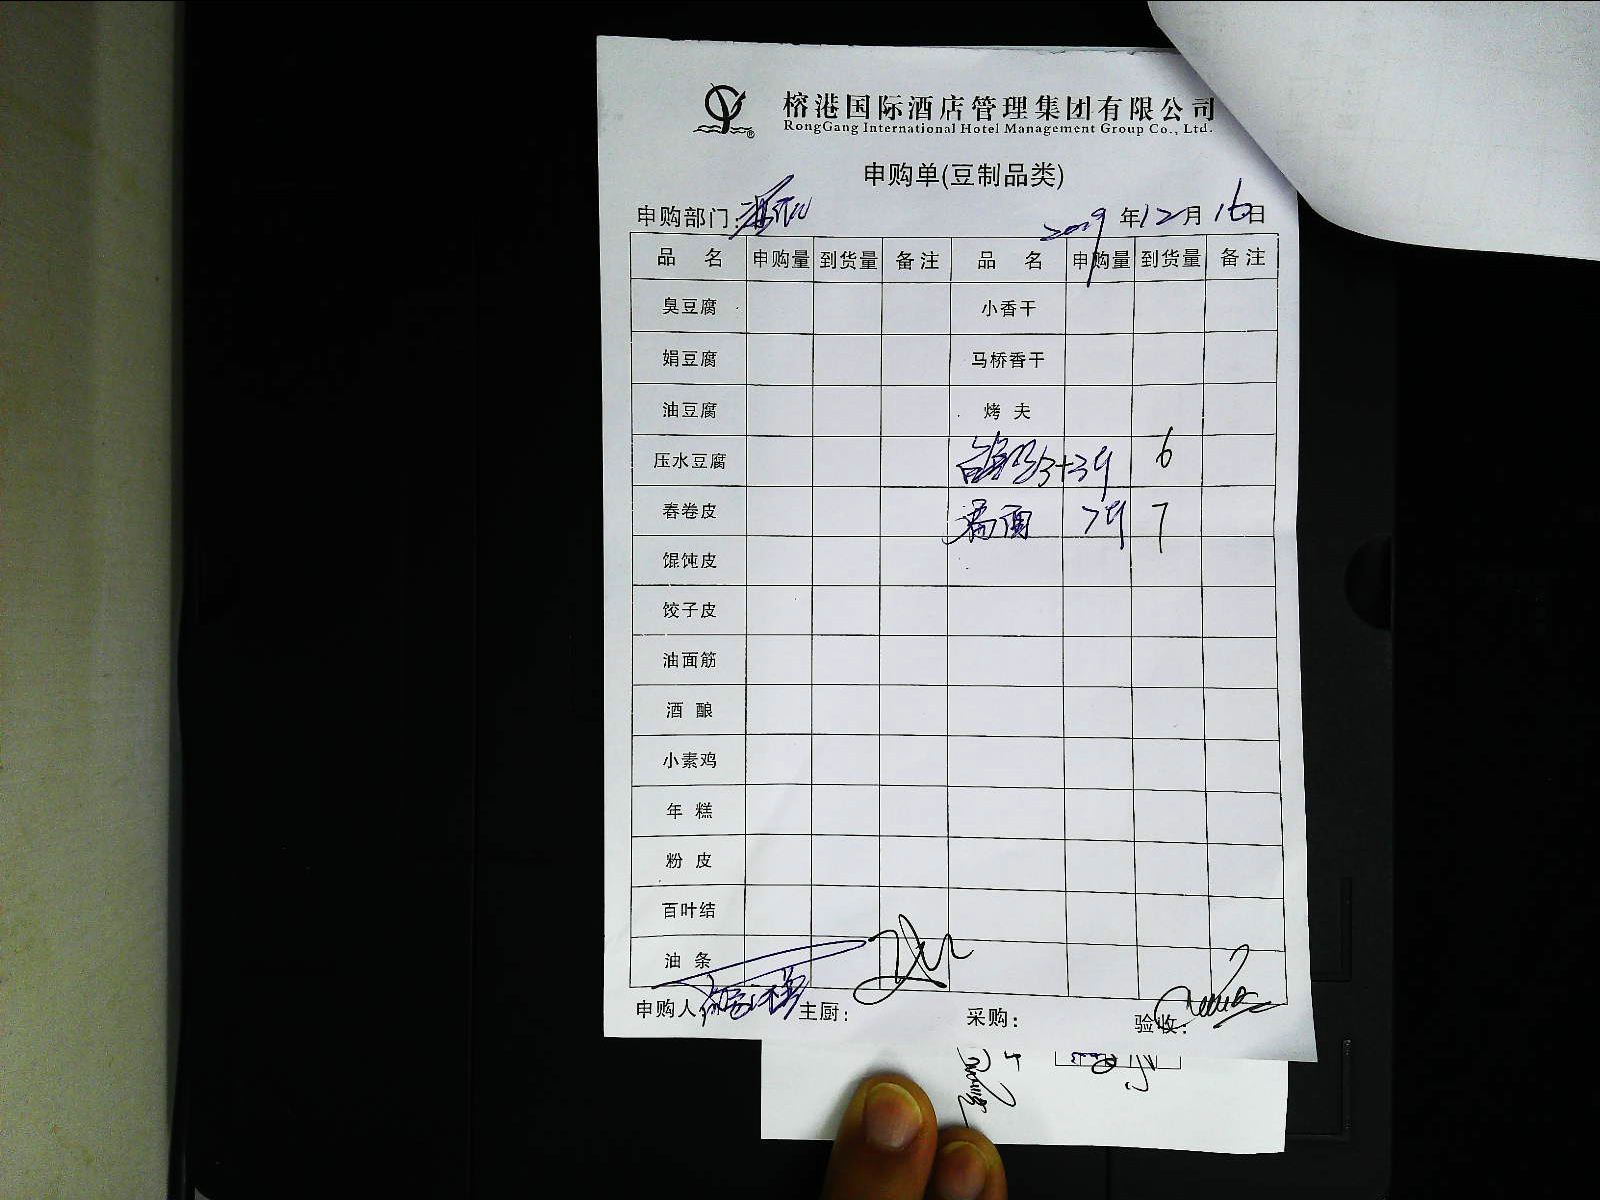 榕港国际酒店管理集团有限公司
RongGang International Hotel Management Group Co., Ltd.
申购单(豆制品类)
申购部门: 2019 年 12 月 16 日
品 名 申购量 到货量 备注 品 名 申购量 到货量 备注
臭豆腐 小香干
娟豆腐 马桥香干
油豆腐 烤 夫
压水豆腐 3+3 6
春卷皮 面 7 7
馄饨皮
饺子皮
油面筋
酒 酿
小素鸡
年 糕
粉 皮
百叶结
油 条
申购人 主厨: 采购: 验收: